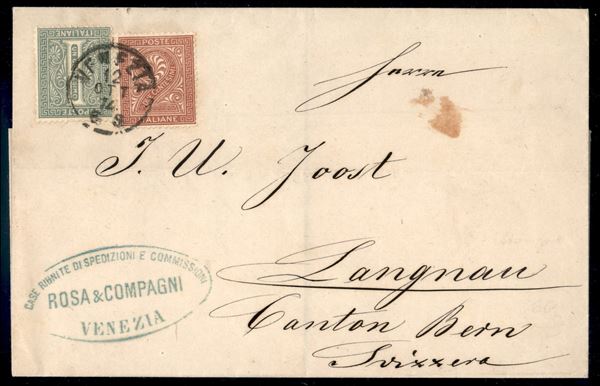 POSTE
ITALIANE
POSTE
ITALIANE
VENEZIA
12
OTT
74
Herrn
J. U. Joost
Langnau
Canton Bern
Svizzera
CASE RIUNITE DI SPEDIZIONI E COMMISSIONI
ROSA & COMPAGNI
VENEZIA